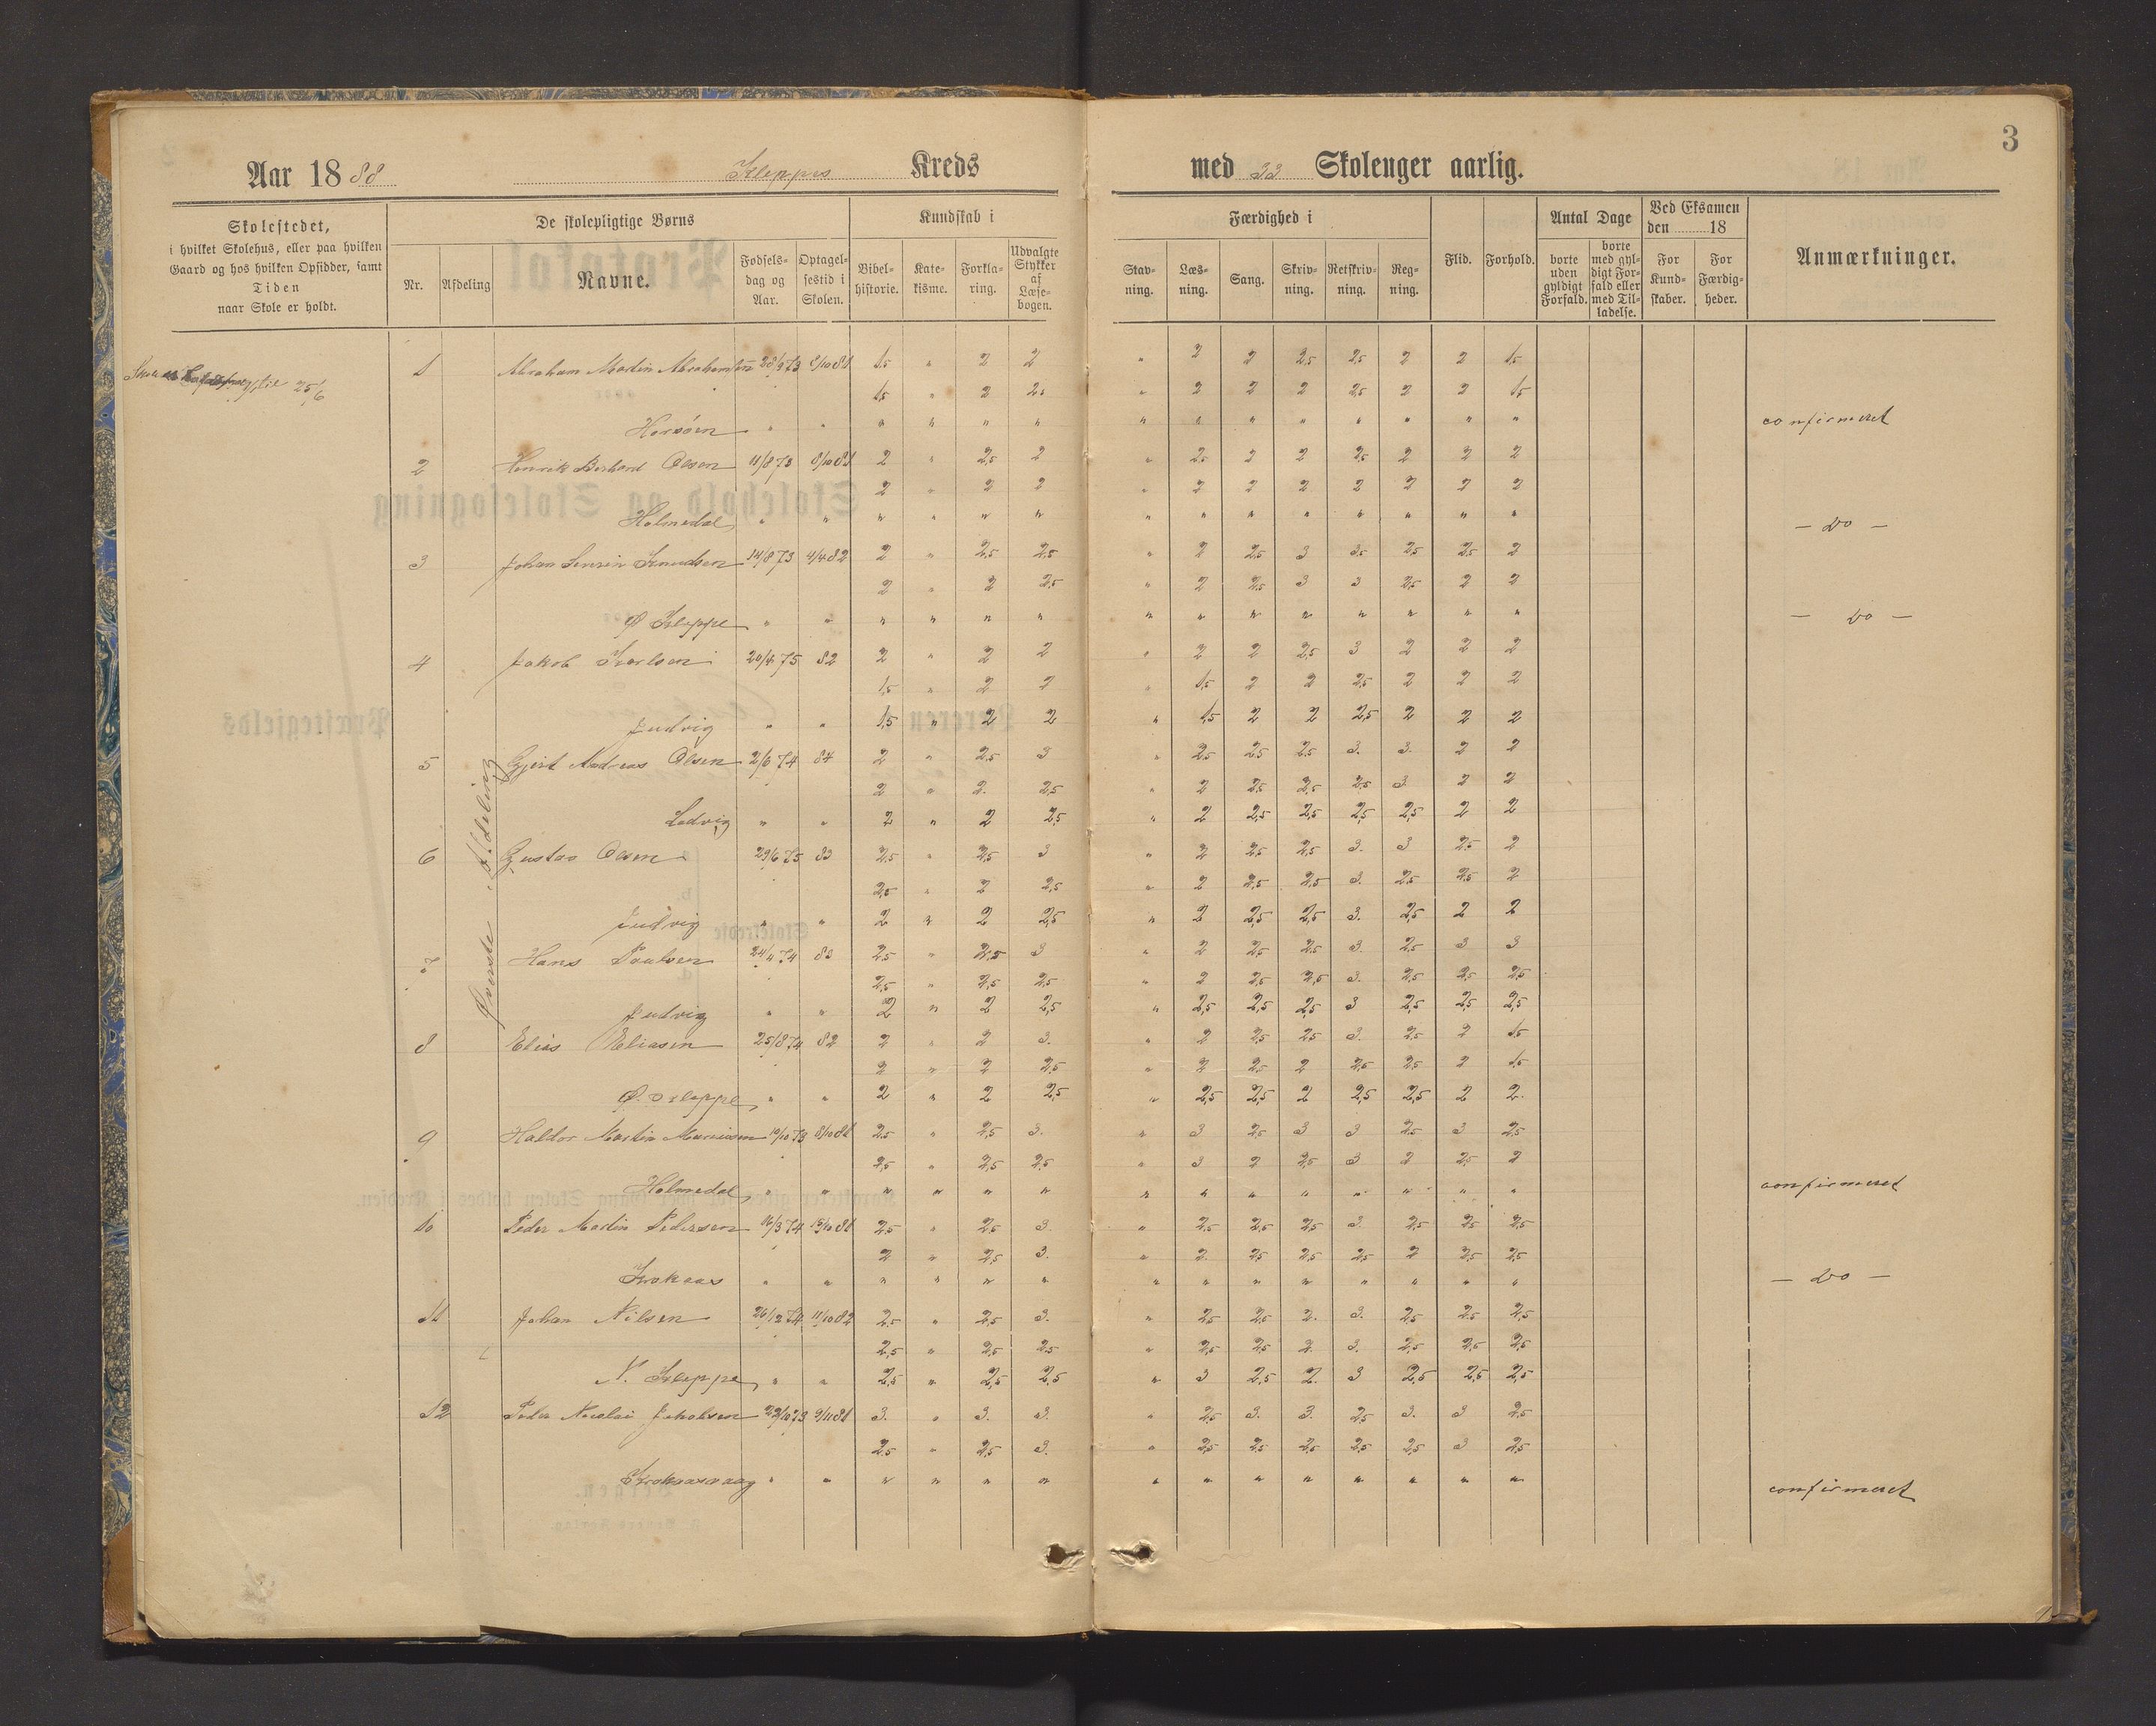 3
Aar 1888 Kleppes Kreds med 33 Skoleuger aarlig.
Skolestedet, i hvilket Skolehus, eller paa hvilken Gaard og hos hvilken Opsidder, samt Tiden naar Skole er holdt.
De skolepligtige Børns
Nr. Afdeling Navne. Fødsels-dag og Aar. Optagel-sestid i Skolen.
Kundskab i
Bibel-historie. Kate-kisme. Forkla-ring. Udvalgte Stykker af Læse-bogen.
Færdighed i
Stav-ning. Læs-ning. Sang. Skriv-ning. Retskriv-ning. Reg-ning.
Flid. Forhold.
Antal Dage
borte uden gyldigt Forfald. borte med gyl-digt For-fald eller med Til-ladelse.
Ved Eksamen den 18
For Kund-skaber. For Færdig-heder.
Anmærkninger.
25/6
Øverste Afdeling
1 Abraham Martin Abrahamsen 28/9 73 8/10 81 1,5 " 2 2 " 2 2 2,5 2,5 2 2 1,5
1,5 " 2 2, " 2 2 2 2,5 2 2 1,5
Horsöen " " " " " " " " " " " " " " confirmeret
2 Henrik Berhard Olsen 11/8 73 8/10 81 2 " 2,5 2 " 2,5 2 2 2,5 2 2 2
2 " 2 2 " 2 2 2 2 2 2 2
Holmedal " " " " " " " " " " " " " " - do -
3 Johan Severin Knudsen 14/8 73 4/4 82 2 " 2,5 2,5 " 2 2,5 3 3,5 2,5 2,5 2
2 " 2 2,5 " 2 2,5 3 3 2,5 2 2
Ø Kleppe " " " " " " " " " " " " " " - do -
4 Jakob Karlsen 20/4 75 82 2 " 2 2 " 2 2 2,5 3 2 2 2
1,5 " 2 2 " 1,5 2 2 2,5 2 2 2
Judvig " " 1,5 " 2 2 " 1,5 2 2 2,5 2 2 2
5 Gjert Andreas Olsen 2/6 74 84 2 " 2,5 3 " 2,5 2,5 2,5 3. 3. 2 2
2 " 2. 2,5 " 2 2,5 2,5 2,5 3. 2 2
Ludvig " " 2 " 2 2,5 " 2 2,5 2,5 2,5 2,5 2 2
6 Gustav Olsen 29/6 75 83 2,5 " 2,5 3 " 2 2,5 2,5 3. 3 2,5 2
2,5 " 2 2,5 " 2 2,5 2,5 3. 2,5 2,5 2
Judvig " " 2 " 2 2,5 " 2 2,5 2,5 3. 2,5 2 2
7 Hans Paulsen 24/11 74 83 2,5 " 2,5 3 " 2 2,5 2,5 3. 2,5 3 3
2,5 " 2,5 2,5 " 2 2,5 2,5 3. 2,5 2,5 2,5
Judvig " " 2 " 2 2,5 " 2,5 2,5 2,5 3 2,5 2,5 2,5
8 Elias Eliasen 25/8 74 82 2 " 2 3. " 2 2,5 2,5 3. 2,5 2 1,5
2 " 2 2,5 " 2 2,5 2 2,5 2,5 2 1,5
Ø. Kleppe " " 2 " 2 2,5 " 2,5 2,5 2 2,5 2,5 2 2.
9 Haldor Martin 10/10 73 8/10 81 2,5 " 2,5 3. " 3 2,5 3 3 2,5 3 2,5
2,5 " 2,5 2,5 " 3 2 2,5 3 2 2,5 2
Holmedal " " " " " " " " " " " " " " confirmeret
10 Peder Martin Pedersen 16/3 74 15/10 81 2,5 " 2,5 3 " 2,5 2,5 2,5 3. 2,5 2,5 2,5
2 " 2,5 3. " 2. 2,5 2,5 2,5 2 2,5 2,5
Krokaas " " " " " " " " " " " " " " - do -
11 Johan Nilsen 26/12 74 11/10 82 2,5 " 2,5 3. " 2,5 2,5 2. 3. 2,5 2,5 2,5
2,5 " 2,5 2,5 " 2,5 2,5 2. 3. 2,5 2,5 2,5
N. Kleppe " " 2,5 " 2,5 2,5 " 3 2,5 2. 3 2,5 2,5 2,5
12 Peder Nicolai Jakobsen 22/10 73 9/11 81 3. " 3. 3. " 2,5 3. 3. 2,5 3. 3 2,5
2,5 " 2,5 3. " 2,5 2,5 2,5 2,5 2,5 3 2,5
Krokaasvaag " " " " " " " " " " " " " " confirmeret